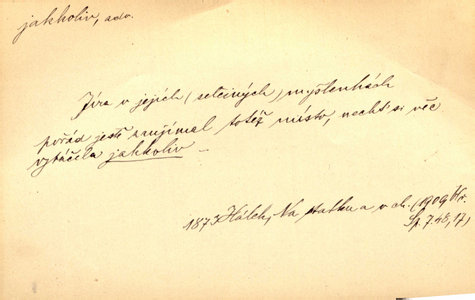 jakkoliv, adv.
Jíra v jejích (selčiných) myšlenkách
pořád ještě zaujímal totéž místo, nechť si věc
vytáčela jakkoliv –
1873 Hálek, Na statku a v ch. (1909,
Sp. 7.48, 17)